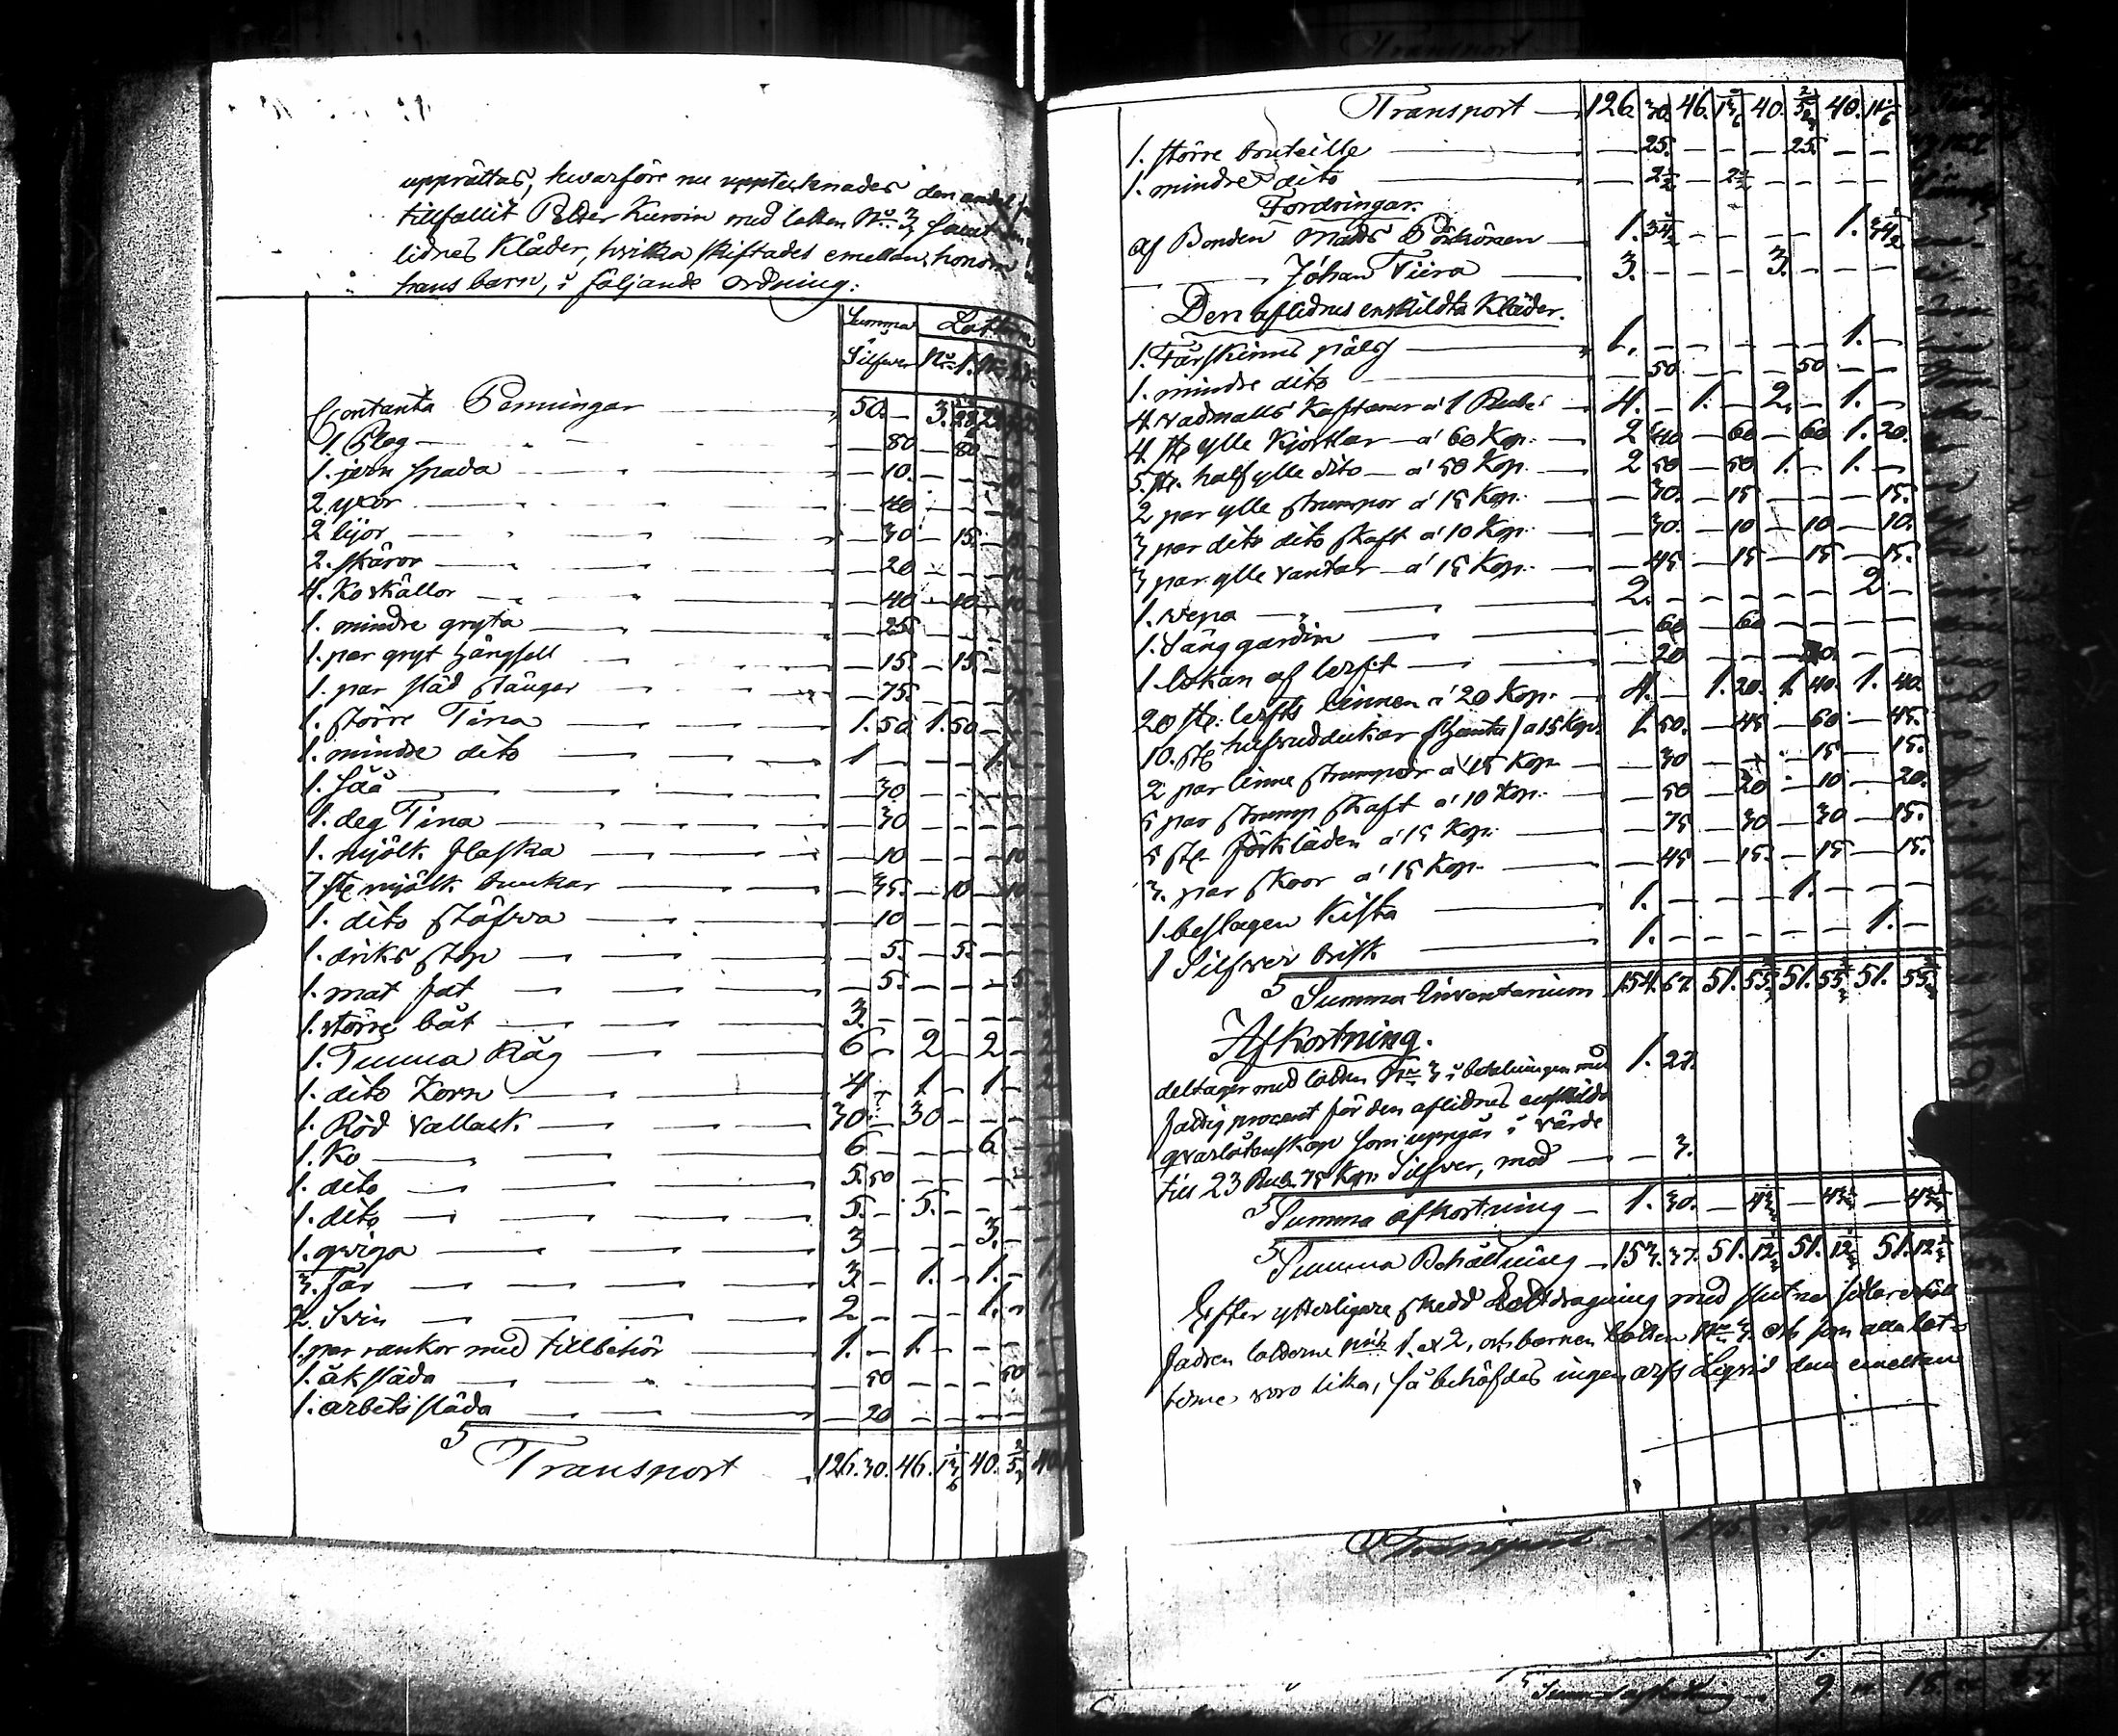 upprättas, hwarföre nu upptecknades den andel
tillfallit Peder Kurvin med lotten No 3 samt
lidnes Kläder, hvilka skiftades emellan honom
hans barn, i följande ordning:
Summa Silfver Lotten No 1.
Contanta Penningar 50. — 3.
1. Plog — 80 — 80 —
1. jern spada — 10. — — — 10
2 yxor — 40 — — —
2 lijor — 30 — 15. — 15
2. skäror — 20 — — —
4. Koskällor — 40 — 10 — 10
1. mindre gryta — 25 — — —
1. par gryt hängsell — 15. — 15. —
1. par släd stänger — 75. — — — 75
1. större Tina 1. 50 1. 50 — —
1. mindre dito 1 — — — 1.
1. Såå — 30 — — — —
1. deg Tina — 30 — — — —
1. mjölk flaska — 10 — — — 10
7 ste mjölk bunkar — 35. — 10 — 10
1. dito stäfva — 10 — — —
1. driks stop — 5. — 5. — —
1. mat fat — 5. — — — 5.
1. större båt 3. — — — — —
1. Tunna Råg 6 — 2 — 2 —
1. dito Korn 4 — 1 — 1 —
1. Röd vallack 30 — 30 — — —
1. Ko 6 — — — 6 —
1. dito 5. 50 — — — —
1. dito 5. — 5. — — —
1. qviga 3 — — — 3. —
3. Får 3 — 1. — 1. —
2. Svin 2 — — — 1. —
1. par rankor med tillbehör 1. — 1. — — —
1. åksläda — 50 — — — 50
1. arbetssläda — 20 — — — —
Transport 126. 30. 46. 13 1/6 40. 5 2/3 40
Transport 126. 30. 46. 13 1/6 40. 5 40. 11
1. större bouteille — 25. — — — 25. — —
1. mindre dito — 2 1/2 — 2 1/2 — — — —
Fordringar.
af Bonden Mats Pörhönen 1. 34 1/2 — — — — 1. 34 1/2
— — Johan Tiira 3. — — — 3. — — —
Den aflidnes enskildta Kläder.
1. Fårskinns päls 1. — — — — — 1. —
1. mindre dito — 50 — — — 50 — —
4. vadmalls Kaftaner a' 1 Rub. 4. — 1. — 2. — 1. —
4. ste ylle Kjortlar a' 60 Kop. 2 40 — 60 — 60 1. 20.
5. ste. half ylle dito a' 50 Kop. 2 50 — 50 1. — 1. —
2 par ylle strumpor a' 15 Kop. — 30. — 15 — — — 15.
3 par dito dito skaft a' 10 Kop. — 30. — 10 — 10 — 10.
3 par ylle vantar a' 15 Kop. — 45 — 15 — 15 — 15.
1. vepa 2. — — — — — 2 —
1. Säng gardin — 60 — 60 — — — —
1 lakan af lerft — 20 — — — 20. — —
20 ste. lerfts linnen a' 20 Kop. 4. — 1. 20. 1. 40. 1. 40.
10. ste hufvuddukar a 15 Kop. 1. 50. — 45 — 60 — 45.
2 par linne strumpor a' 15 Kop — 30 — — — 15 — 15.
5 par strump skaft a' 10 Kop. — 50 — 20 — 10 — 20.
5 ste förkläden a' 15 Kop. — 75 — 30 — 30 — 15.
3. par skoor a' 15 Kop. — 45 — 15. — 15 — 15.
1. beslagen Kista 1. — — — 1. — — —
1 Silfver brisk 1. — — — — — 1. —
Summa Inventarium 154. 67. 51. 55 2/3 51. 55 2/3 51. 55 2/3
Afkortning.
deltager med lotten No 3 i betalningen med 1. 27.
fattig procent för den aflidnes enskilda
qvarlåtenskap som uppgår i värde
till 23 Rub. 75 Kop Silfver, med — 3.
Summa afkortning 1. 30. — 43 1/3 — 43 1/3 — 43 1/3
Summa Behållning 153. 37. 51. 12 1/3 51. 12 1/3 51. 12 1/3
Efter ytterligare skedd Lottdragning med slutna sedlar erhöll
fadren lotterne No 1. et 2, och barnen lotten No 3. och som alla lot-
terne voro lika, så behöfdes ingen arfs Liqvid dem emellan
Transport